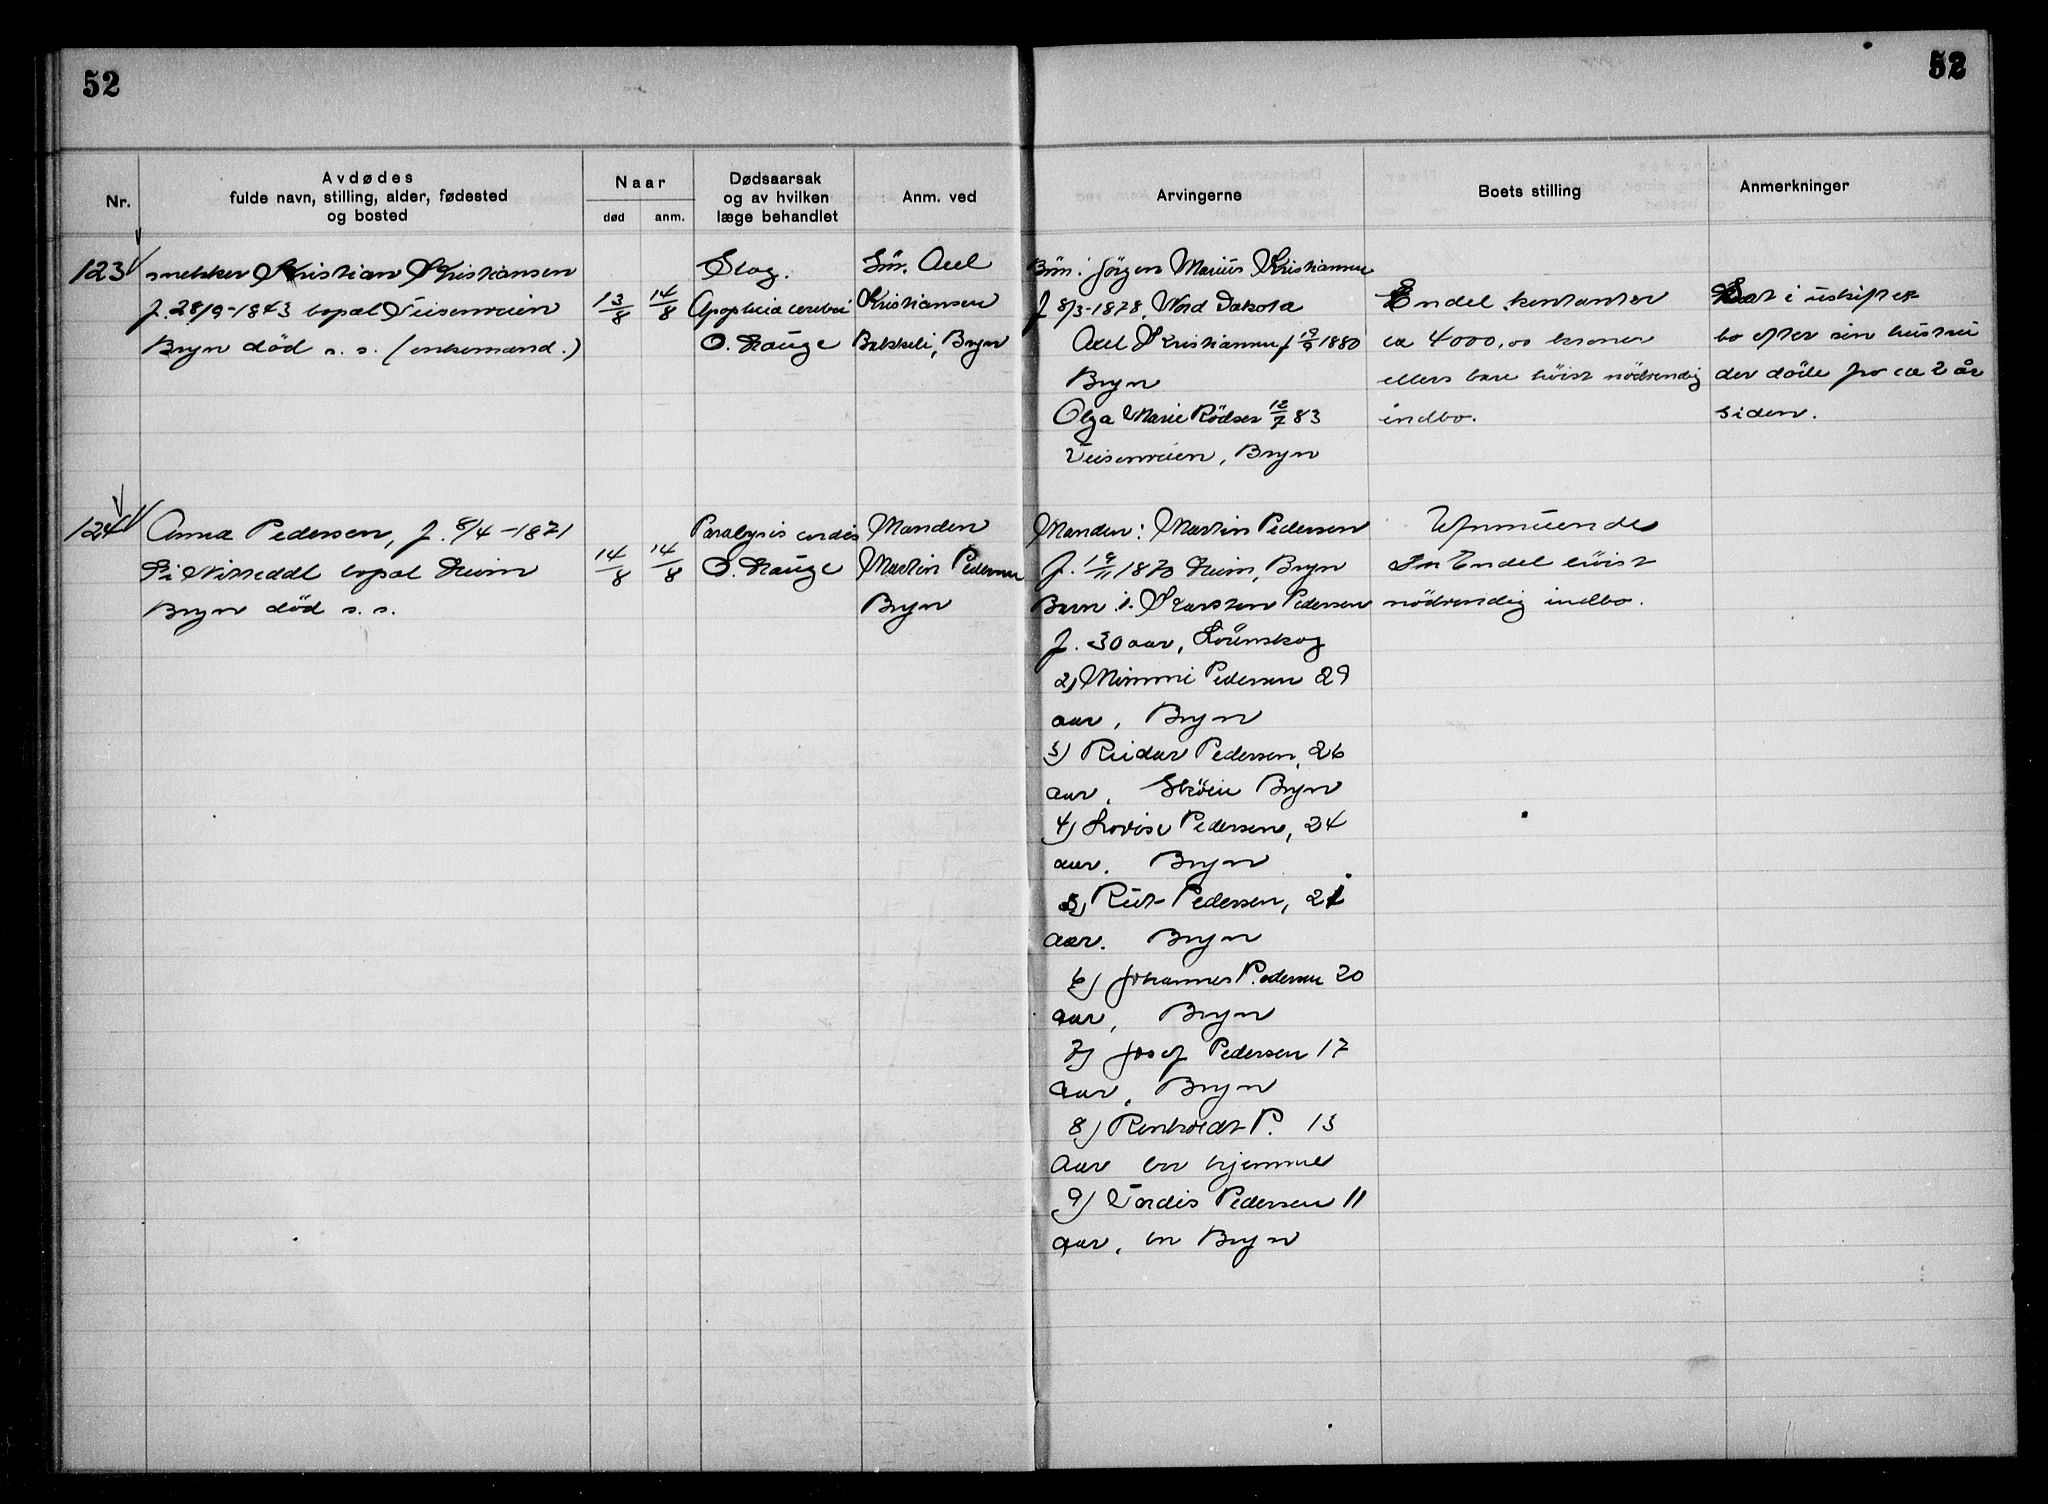 52
52
Nr.
Avdødes
fulde navn, stilling, alder, fødested
og bosted
Naar
død
anm.
Dødsaarsak
og av hvilken
læge behandlet
Anm. ved
Arvingerne
Boets stilling
Anmerkninger
123
snekker Kristian Kristiansen
f. 28/9-1843 bopæl
Bryn død s. s. (enkemand.)
13/8
14/8
Slag.
Apoplexia cerebri
O. Hauge
Sön. Axel
Kristiansen
Bakkeli, Bryn
Börn: Jörgen Marius Kristiansen
f 8/3-1878, Nord Dakota
Axel Kristiansen f 1880
Bryn
Olga Marie Rödser 12/7 83
Bryn
Endel kontanter
ca 4000,00 kroner
ellers bare höist nödvendig
indbo.
Sat i uskiftet
bo efter sin hustru
der döde for ca 2 år
siden.
124
Anna Pedersen, f. 8/4-1871
i Nissedal bopæl Heim
Bryn død s. s.
14/8
14/8
Paralysis cordis
O. Hauge
Manden
Martin Pedersen
Bryn
Manden: Martin Pedersen
f. 1870 Heim, Bryn
Barn: 1. Karsten Pedersen
f. 30 aar, Lörenskog
2) Mimmi Pedersen 29
aar, Bryn
3) Reidar Pedersen, 26
aar, Sköien Bryn
4) Lovise Pedersen, 24
aar. Bryn
5) Rut Pedersen, 21
aar. Bryn
6) Johannes Pedersen 20
aar, Bryn
7) Josef Pedersen 17
aar, Bryn
8) Renholdt P. 13
aar bor hjemme
9) Tordis Pedersen 11
aar, bor Bryn
Uformuende
Endel höist
nödvendig indbo.